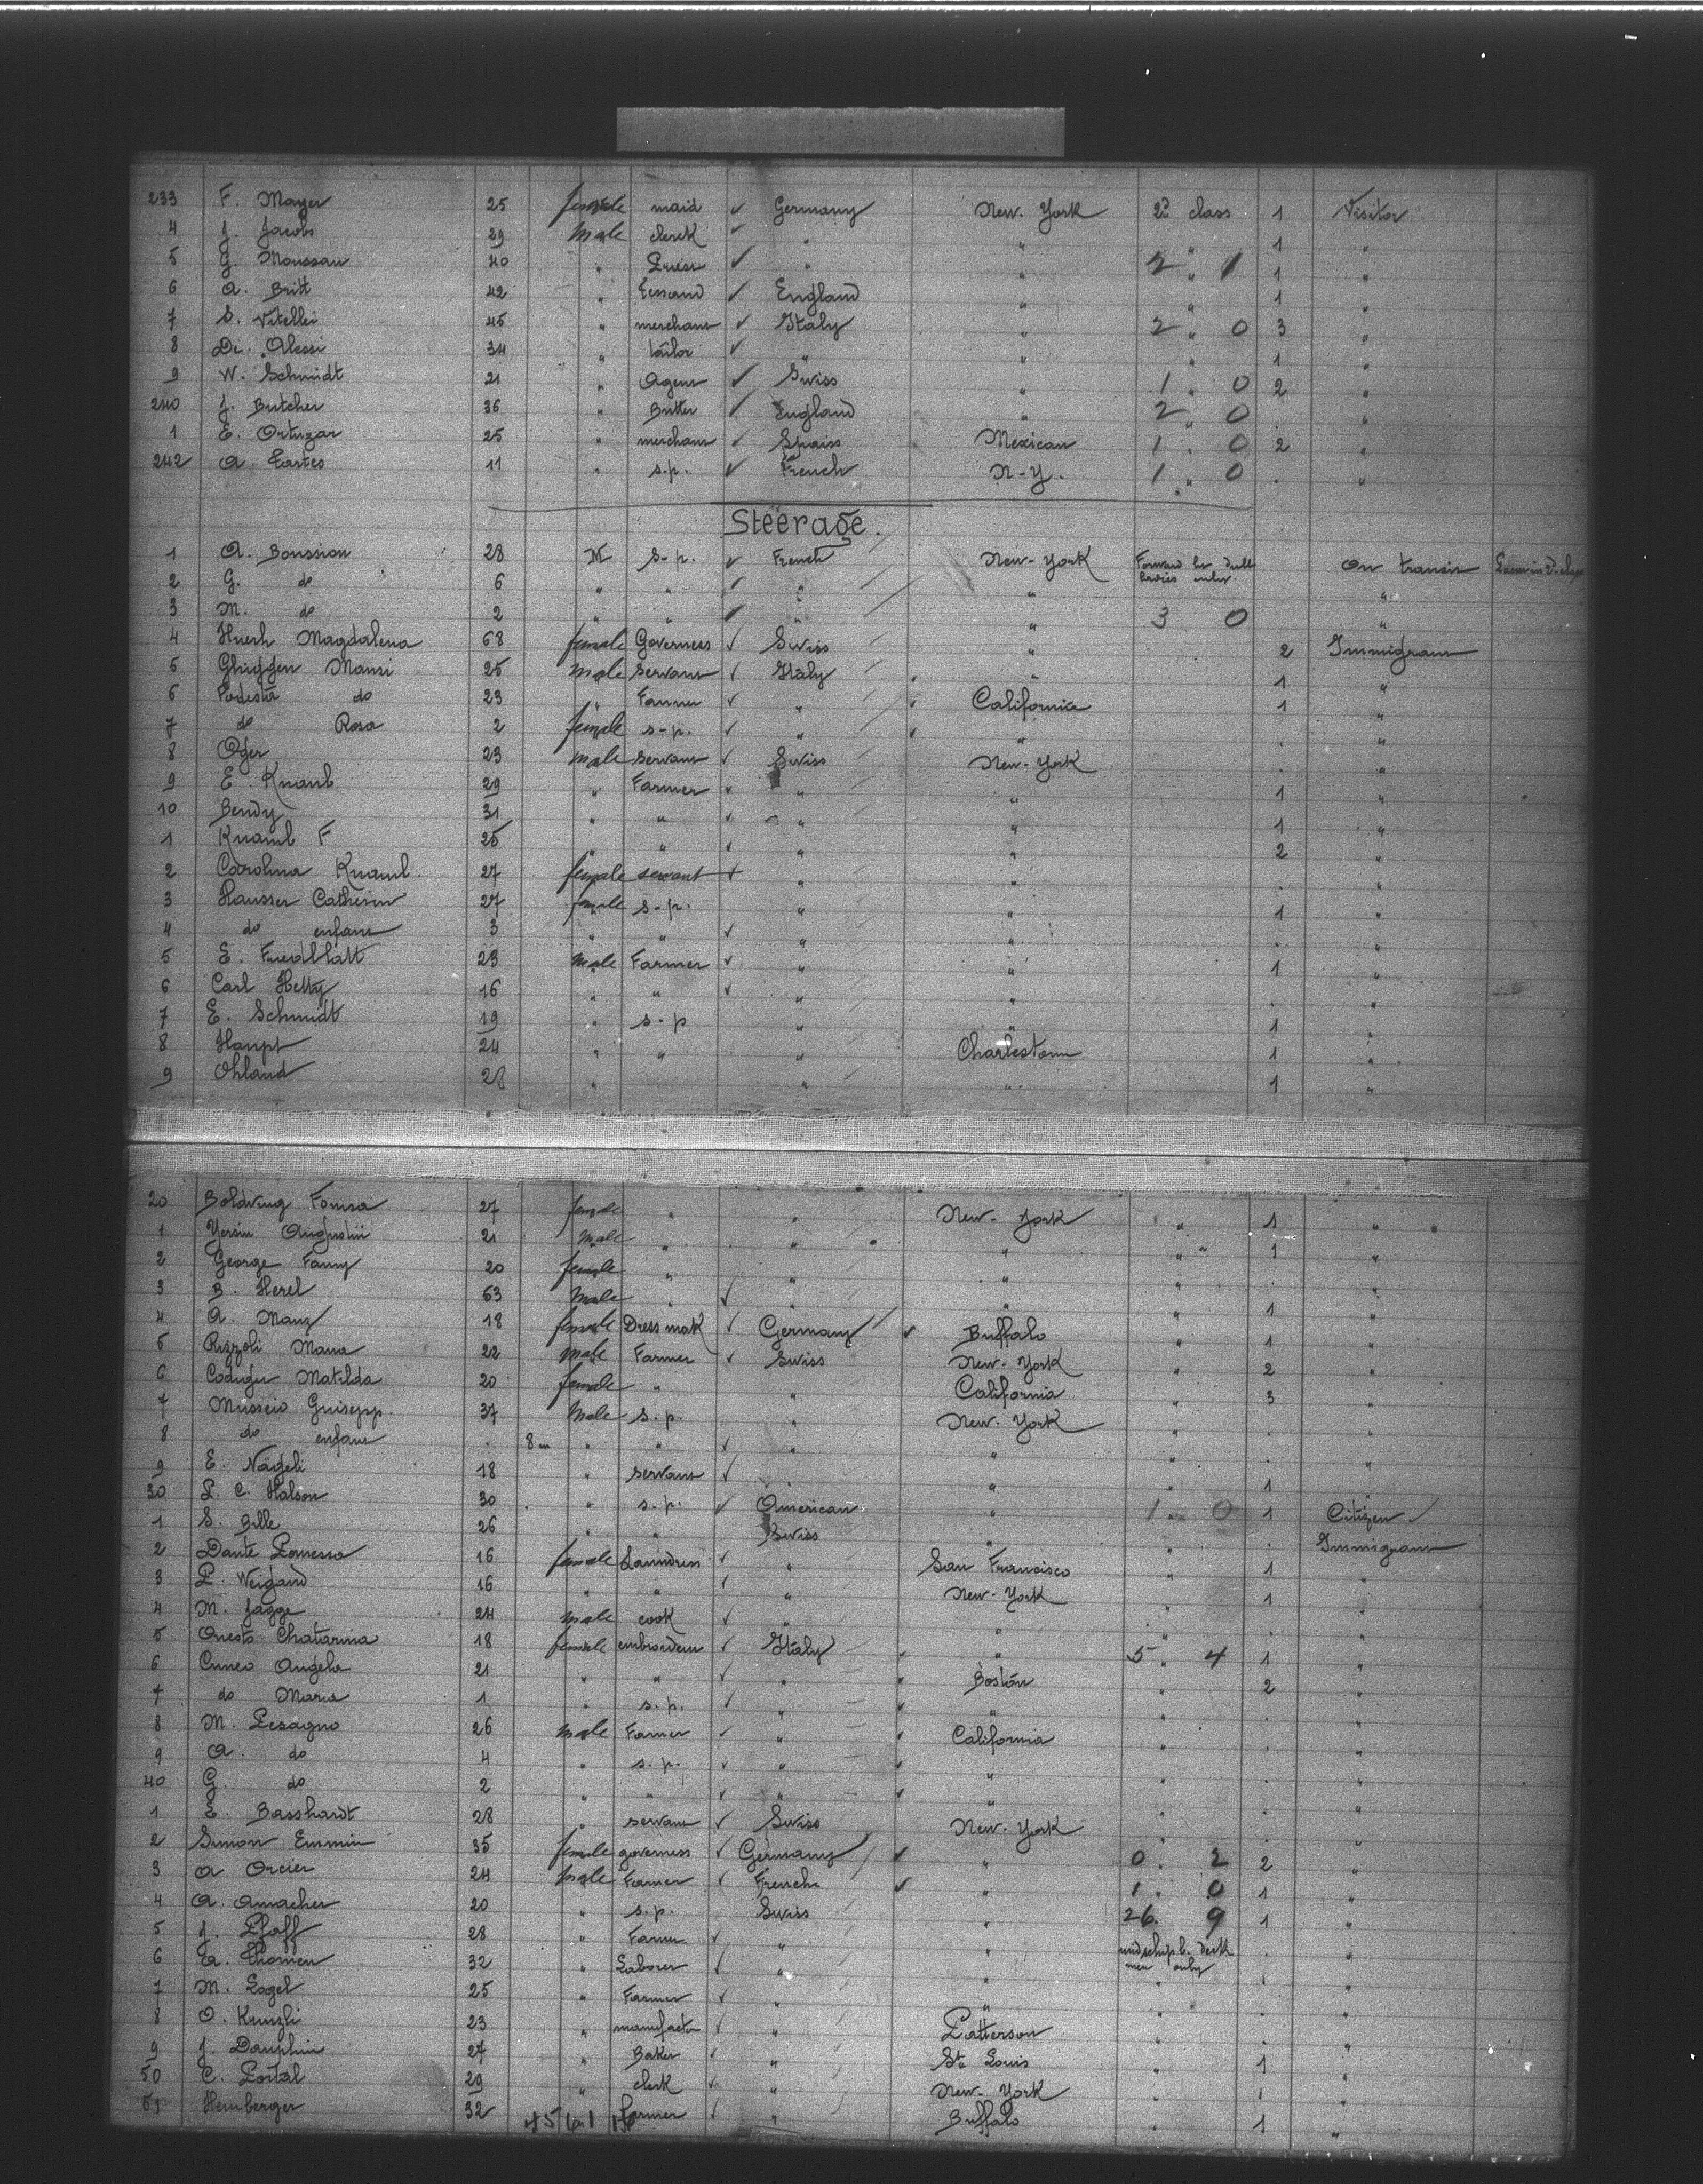 233 F. Mayer 25 female maid ✓ Germany New-York 2d class 1 Visitor
4 J. Jacobs 29 Male clerck ✓ " " " 1 "
5 G. Moussau 40 " ✓ " " 2 " 1 1 "
6 A. Britt 42 " ✓ England " " 1 "
7 S. Vitellei 45 " merchant ✓ Italy " 2 " 0 3 "
8 Dr. Alessi 34 " tailor ✓ " " " 1 "
9 W. Schmidt 21 " Agent ✓ Swiss " 1 " 0 2 "
240 J. Butcher 36 " Butter ✓ England " 2 " 0 . "
1 E. Ortuzar 25 " merchant ✓ Spain Mexican 1 " 0 2 "
242 A. Lartes 11 " s.p. ✓ French N-Y. 1 " 0 . "
Steerage.
1 A. Boussion 28 M s-p. ✓ French New-York Forward on transit
2 G. do 6 " " ✓ " " "
3 M. do 2 " " ✓ " " 3 0 "
4 Huerh Magdalena 68 female Governees ✓ Swiss " 2 Immigrant
5 Ghiggen Mansi 25 male servant ✓ Italy " 1 "
6 Podesta do 23 " Farmer ✓ " California 1 "
7 do Rosa 2 female s-p. ✓ " " . "
8 Oger 23 male servant ✓ Swiss New-York . "
9 E. Knaub 29 " Farmer ✓ " " 1 "
10 Bendy 31 " " ✓ " " 1 "
1 Knamb F 25 " " ✓ " " 2 "
2 Carolina Knaml. 27 female servant ✓ " " . "
3 Hausser Catherin 27 female s-p. " " 1 "
4 do enfant 3 " " ✓ " " . "
5 E. Friedblatt 23 male Farmer ✓ " " 1 "
6 Carl Hetty 16 " " ✓ " " . "
7 E. Schmidt 19 " s-p " " 1 "
8 Haupt 24 " " " Charlestown 1 "
9 Ohland 28 " " " 1 "
20 Boldring 27 female " " New-York " 1 "
1 Yersin Augustin 21 male " " " " 1 "
2 George Fanny 20 female " " " " . "
3 B. Herel 63 Male " ✓ " " " 1 "
4 A. Manz 18 female Dress mak ✓ Germany ✓ Buffalo " 1 "
5 Rizzoli Maria 22 male Farmer ✓ Swiss New-York " 2 "
6 Matilda 20 female " " California " 3 "
7 Muscio Guisepp. 37 Male s.p. " New-York " . "
8 do enfant . 8 m " " ✓ " " " . "
9 E. Nägeli 18 " servant ✓ " " " 1 "
30 P. C. Halson 30 " s.p. ✓ American " 1 " 0 1 Citizen ✓
1 S. Bille 26 " " Swiss " " . Immigrant
2 Dante 16 female Laundress ✓ " San Francisco " 1 "
3 P. Weigand 16 " " ✓ " New-York " 1 "
4 M. Jagge 24 male cook ✓ " " " . "
5 Onesto Chatarina 18 female ✓ Italy " 5 " 4 1 "
6 Cuneo Angela 21 " " ✓ " Boston " 2 "
7 do Maria 1 " s.p. ✓ " ✓ " " . "
8 M. Pesagno 26 male Farmer ✓ " ✓ California " . "
9 A. do 4 " s.p. ✓ " ✓ " " . "
40 G. do 2 " " ✓ " ✓ " " . "
1 E. Bosshardt 28 " servant ✓ Swiss New-York " . "
2 Simon Emmin 35 female governess ✓ Germany ✓ " 0 " 2 2 "
3 A Orcier 24 Male Farmer ✓ French ✓ " 1 " 0 1 "
4 A. Amacher 20 " s.p. Swiss " 26. 9 1 "
5 J. Pfaff 28 " Farmer ✓ " " midship b. deck . "
men only
6 A. Thomen 32 " Laborer ✓ " " " . "
7 M. Logel 25 " Farmer ✓ " " " . "
8 O. Kunzli 23 " manufactu ✓ " Patterson " . "
9 J. Dauphin 27 " Baker ✓ " St Louis " 1 "
50 C. Portal 29 " clerk ✓ " New-York " 1 "
51 Hemberger 32 farmer ✓ " Buffalo " 1 "